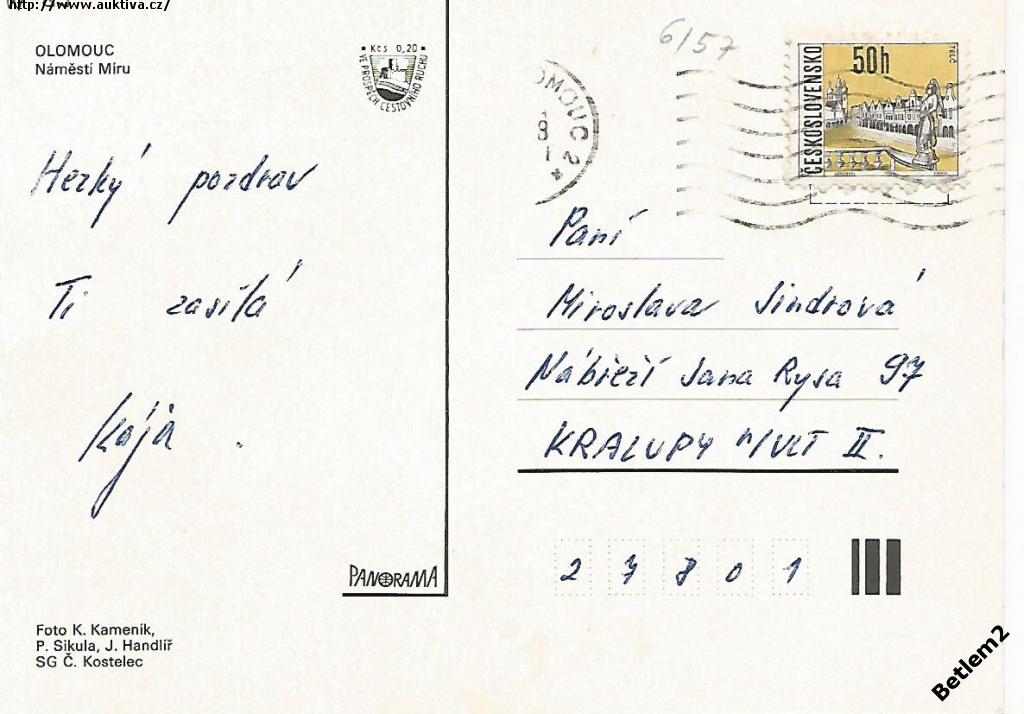 http://www.auktiva.cz/
OLOMOUC
Náměstí Míru
Kčs 0,20
VE PROSPĚCH CESTOVNÍHO RUCHU
6/57
OMOUC 2
8
1
ČESKOSLOVENSKO
50h
TELČ
Hezký pozdrav
Ti zasílá
Kája
Paní
Miroslava Jindrová
Nábřeží Jana Rysa 97
KRALUPY n/VLT II.
27801
PANORAMA
Foto K. Kameník,
P. Sikula, J. Handlíř
SG Č. Kostelec
Betlem2